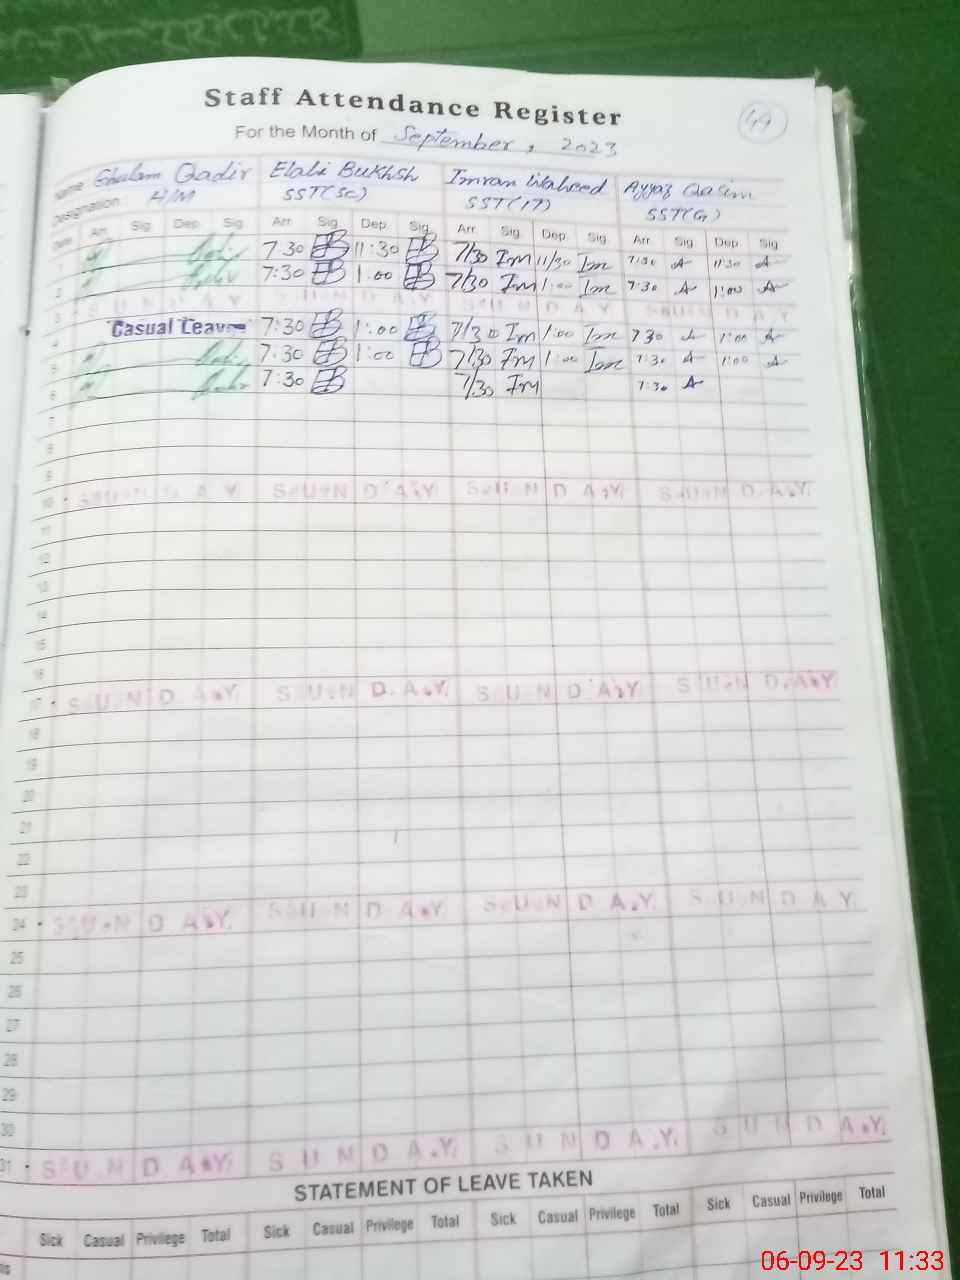 Staff Attendance Register
49
For the Month of September, 2023
Name Ghulam Qadir Elahi Bukhsh Imran Waheed Ayyaz Qasim
Designation H/M SST(SC) SST(IT) SST(G)
Date Arr. Sig. Dep. Sig. Arr. Sig. Dep. Sig. Arr. Sig. Dep. Sig. Arr. Sig. Dep. Sig.
7 30 11:30 7/30 Im 11/30 Im 7:30 A 11:30 A
2 7:30 1.00 7/30 Im 1:00 Im 7:30 A 1:00 A
3 SUNDAY SUNDAY SUNDAY SUNDAY
4 Casual Leave 7:30 1:00 7/30 Im 1:00 Im 7 30 A 1:00 A
5 7.30 1:00 7/30 Im 1:00 Im 7:30 A 1:00 A
6 7:30 7/30 Im 7:30 A
7
8
9
10 SUNDAY SUNDAY SUNDAY SUNDAY
11
12
13
14
15
16
17 SUNDAY SUNDAY SUNDAY SUNDAY
18
19
20
21
22
23
24 SUNDAY SUNDAY SUNDAY SUNDAY
25
26
27
28
29
30
31 SUNDAY SUNDAY SUNDAY SUNDAY
STATEMENT OF LEAVE TAKEN
Sick Casual Privilege Total Sick Casual Privilege Total Sick Casual Privilege Total Sick Casual Privilege Total
06-09-23 11:33